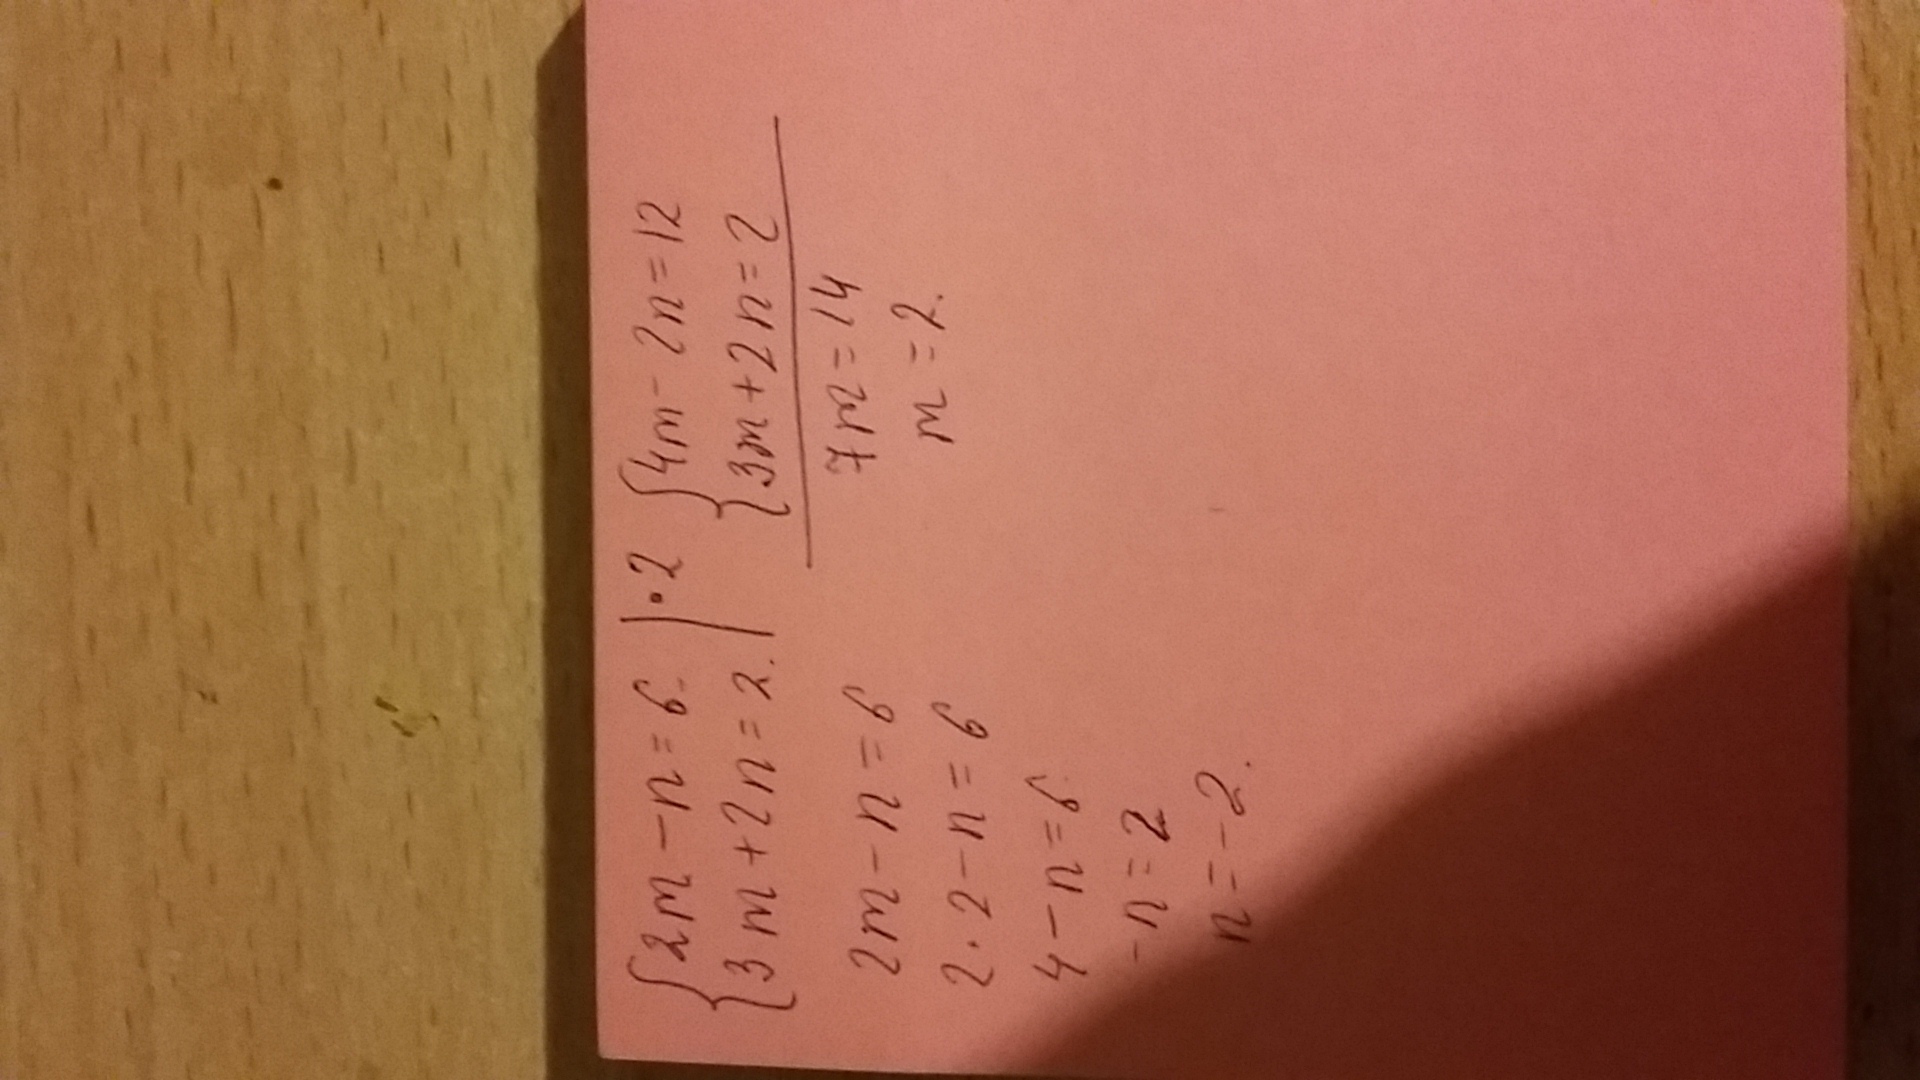 {2m-n=6. |·2 {4m-2n=12
{3m+2n=2. | {3m+2n=2
7m=14
m=2.
2m-n=6
2·2-n=6
4-n=6.
-n=2
n=-2.